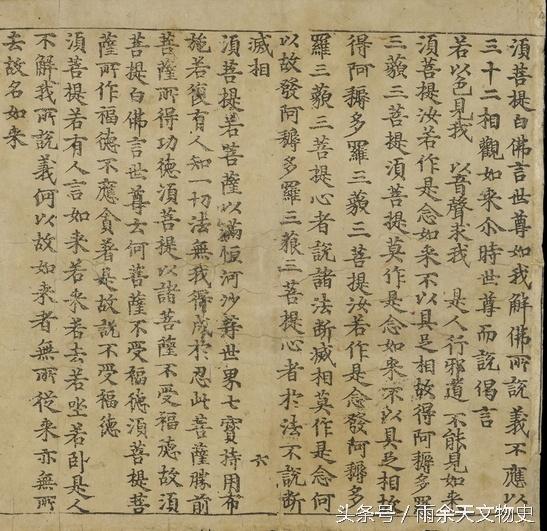 須菩提白佛言世尊如我解佛所說義不應以
三十二相觀如来尒時世尊而說偈言
若以色見我 以音聲求我 是人行邪道 不能見如来
須菩提汝若作是念如来不以具足相故得阿耨多羅
三藐三菩提須菩提莫作是念如来不以具足相故
得阿耨多羅三藐三菩提汝若作是念發阿耨多
羅三藐三菩提心者說諸法断滅相莫作是念何
以故發阿耨多羅三藐三菩提心者於法不說断
滅相
六
須菩提若菩薩以滿恒河沙等世界七寶持用布
施若復有人知一切法無我得成於忍此菩薩勝前
菩薩所得功德須菩提以諸菩薩不受福德故須
菩提白佛言世尊云何菩薩不受福德須菩提菩
薩所作福德不應貪著是故說不受福德
須菩提若有人言如来若来若去若坐若卧是人
不解我所說義何以故如来者無所從来亦無所
去故名如来
头条号 / 雨余天文物史